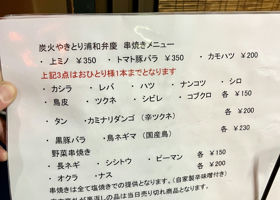 炭火やきとり浦和弁慶 串焼きメニュー
・上ミノ ¥350 ・トマト豚バラ ¥350 ・カモハツ ¥200
上記3点はおひとり様1本までとなります
・カシラ ・レバ ・ハツ ・ナンコツ ・シロ
・鳥皮 ・ツクネ ・シビレ ・コブクロ 各 ¥150
・タン ・カミナリダンゴ（辛ツクネ） 各 ¥200
・黒豚バラ ・鳥ネギマ（国産鳥） 各 ¥230
野菜串焼き
・長ネギ ・シシトウ ・ピーマン 各 ¥150
・オクラ ・ナス 各 ¥200
串焼きは全て塩焼きでの提供となります。（自家製辛味噌付き）
返しの品は当日売り切れ商品となります。